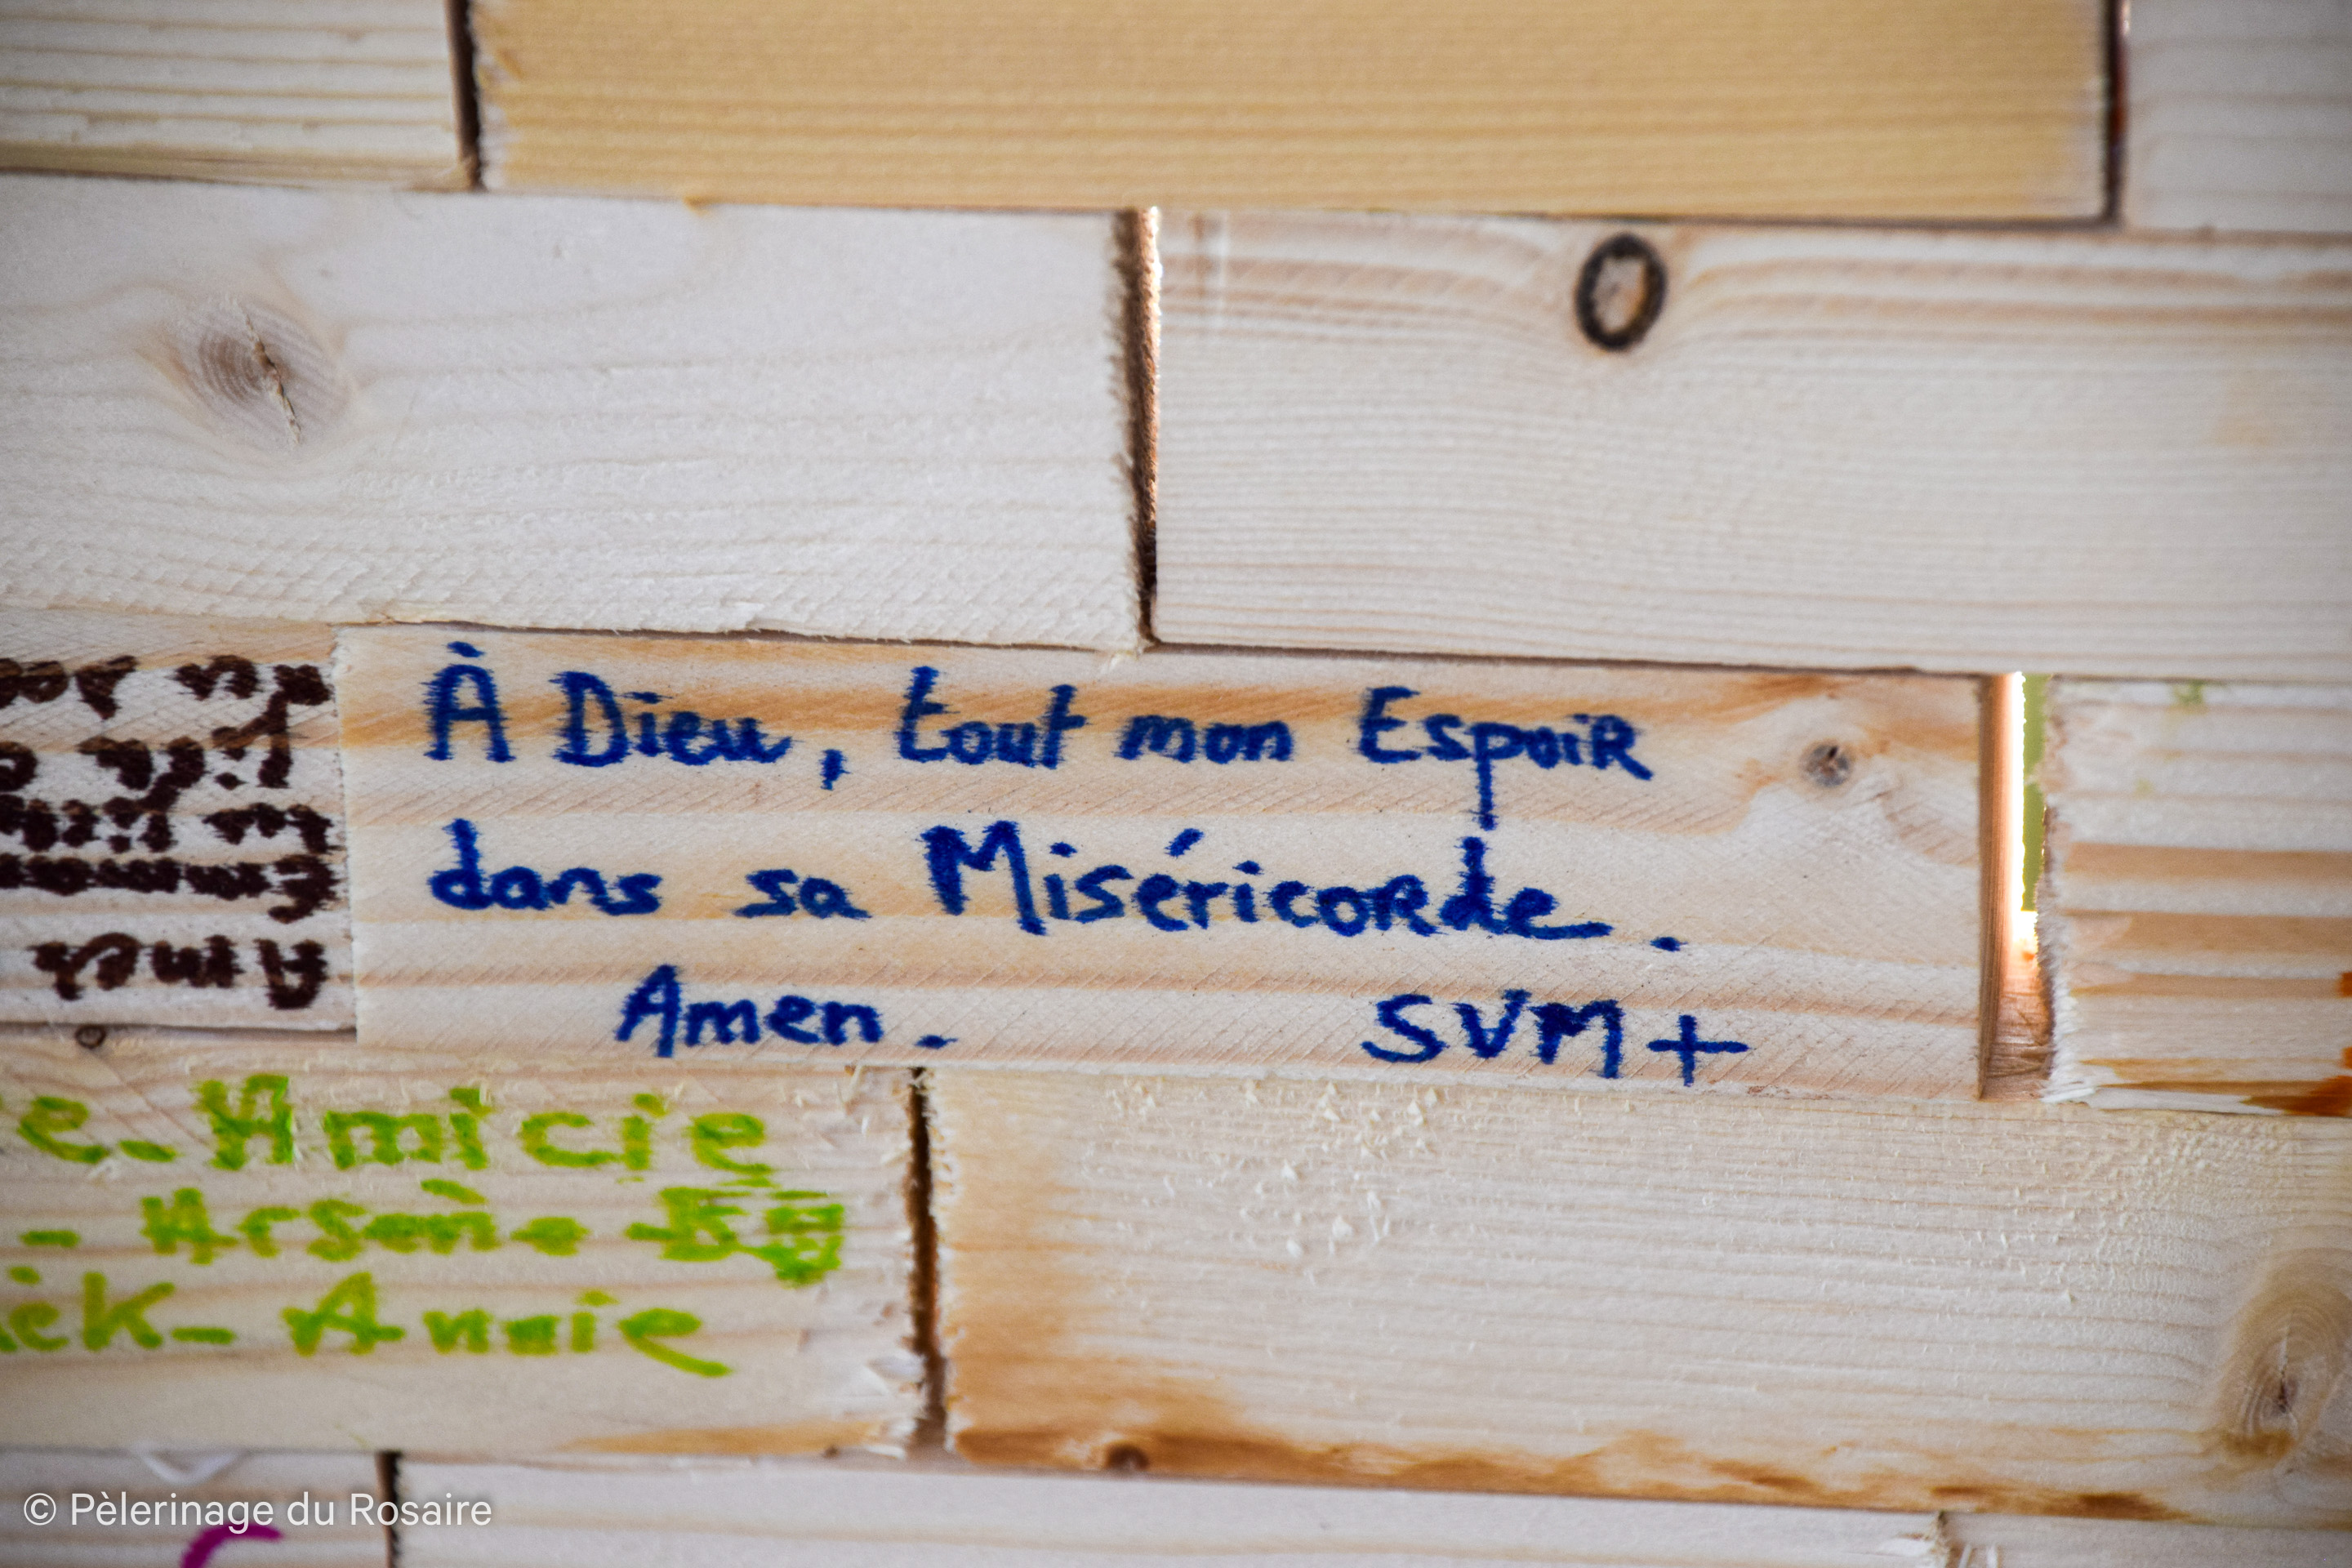 À Dieu, tout mon Espoir
dans sa Miséricorde.
Amen. SVM+
Amen
e_ Amicie
- Arsène
ièk_ Annie
© Pèlerinage du Rosaire